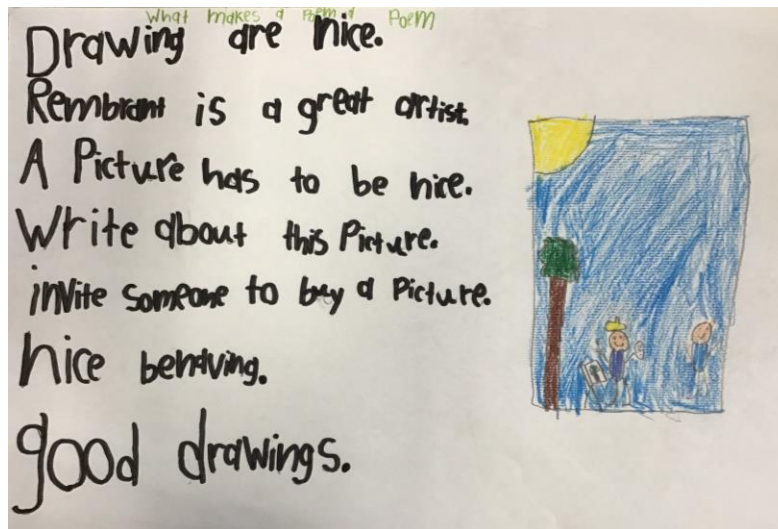 What makes a Poem a Poem
Drawing are nice.
Rembrant is a great artist.
A Picture has to be nice.
Write about this Picture.
invite someone to buy a Picture.
nice behaving.
good drawings.